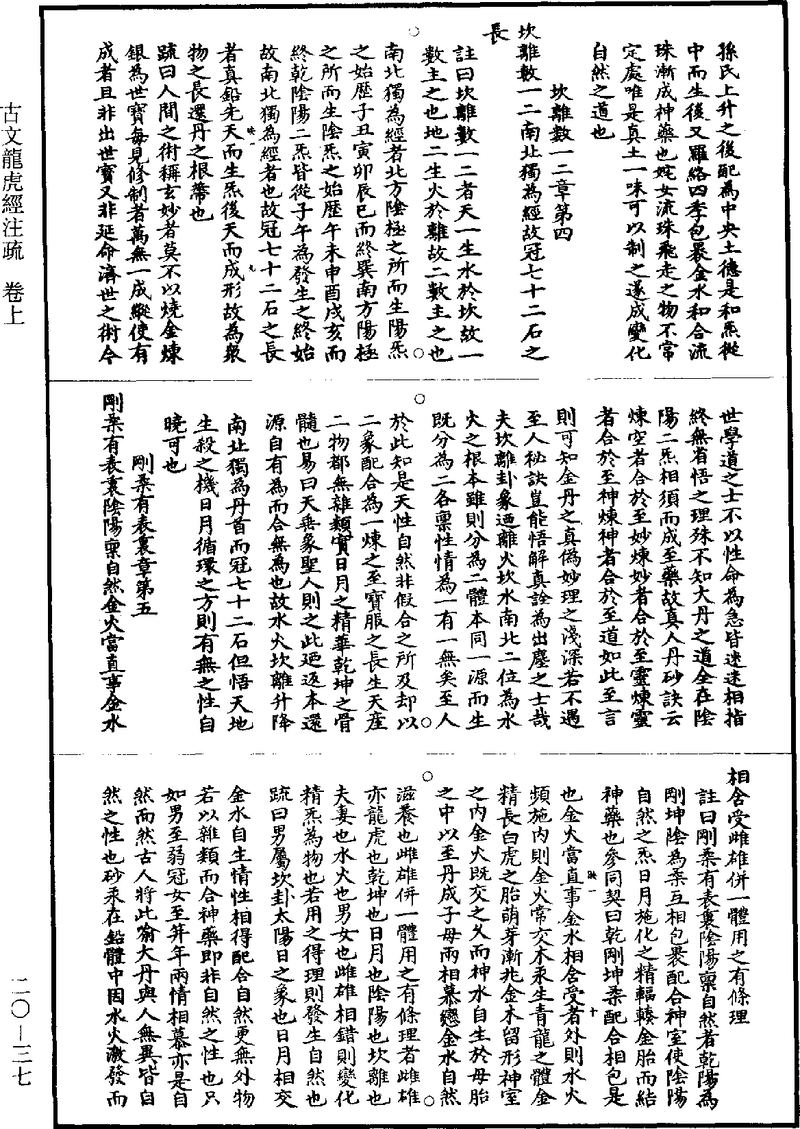 古文龍虎經注疏 卷上
二〇—三七
孫氏上升之後配為中央土德是和炁從
中而生後又羅絡四季包裹金水和合流
珠漸成神藥也姹女流珠飛走之物不常
定處唯是真土一味可以制之遂成變化
自然之道也
坎離數一二章第四
坎離數一二南北獨為經故冠七十二石之
長
註曰坎離數一二者天一生水於坎故一
數主之也地二生火於離故二數主之也
南北獨為經者北方陰極之所而生陽炁
之始歷子丑寅卯辰巳而終巽南方陽極
之所而生陰炁之始歷午未申酉戌亥而
終乾陰陽二炁皆從子午為發生之終始
故南北獨為經者也故冠七十二石之長
者真鉛先天而生炁後天而成形故為眾
物之長還丹之根蔕也
疏曰人間之術稱玄妙者莫不以燒金煉
銀為世寶每見修制者萬無一成縱使有
成者且非出世寶又非延命濟世之術令
世學道之士不以性命為急皆迷迷相指
終無省悟之理殊不知大丹之道全在陰
陽二炁相須而成至藥故真人丹砂訣云
煉空者合於至妙煉妙者合於至靈煉靈
者合於至神煉神者合於至道如此至言
則可知金丹之真偽妙理之淺深若不遇
至人秘訣豈能悟解真詮為出塵之士哉
夫坎離卦象迺離火坎水南北二位為水
火之根本雖則分為二體本同一源而生
既分為二各稟性情為一有一無矣至人
於此知是天性自然非假合之所及却以
二象配合為一煉之至寶服之長生天產
二物都無雜類實日月之精華乾坤之骨
髓也易曰天垂象聖人則之此迺返本還
源自有為而合無為也故水火坎離升降
南北獨為丹首而冠七十二石但悟天地
生殺之機日月循環之方則有無之性自
曉可也
剛柔有表裏章第五
剛柔有表裏陰陽稟自然金火當直事金水
相舍受雌雄併一體用之有條理
註曰剛柔有表裏陰陽稟自然者乾陽為
剛坤陰為柔互相包裹配合神室使陰陽
自然之炁日月施化之精輻輳金胎而結
神藥也參同契曰乾剛坤柔配合相包是
也金火當直事金水相舍受者外則水火
頻施內則金火常交木汞生青龍之體金
精長白虎之胎萌芽漸兆金木留形神室
之內金火既交之久而神水自生於母胎
之中以至丹成子母兩相慕戀金水自然
滋養也雌雄併一體用之有條理者雌雄
亦龍虎也乾坤也日月也陰陽也坎離也
夫妻也水火也男女也雌雄相錯則變化
精炁為物也若用之得理則發生自然也
疏曰男屬坎卦太陽日之象也日月相交
金水自生情性相得配合自然更無外物
若以雜類而合神藥即非自然之性也只
如男至弱冠女至笄年兩情相慕亦是自
然而然古人將此喻大丹與人無異皆自
然之性也砂汞在鉛體中因水火激發而